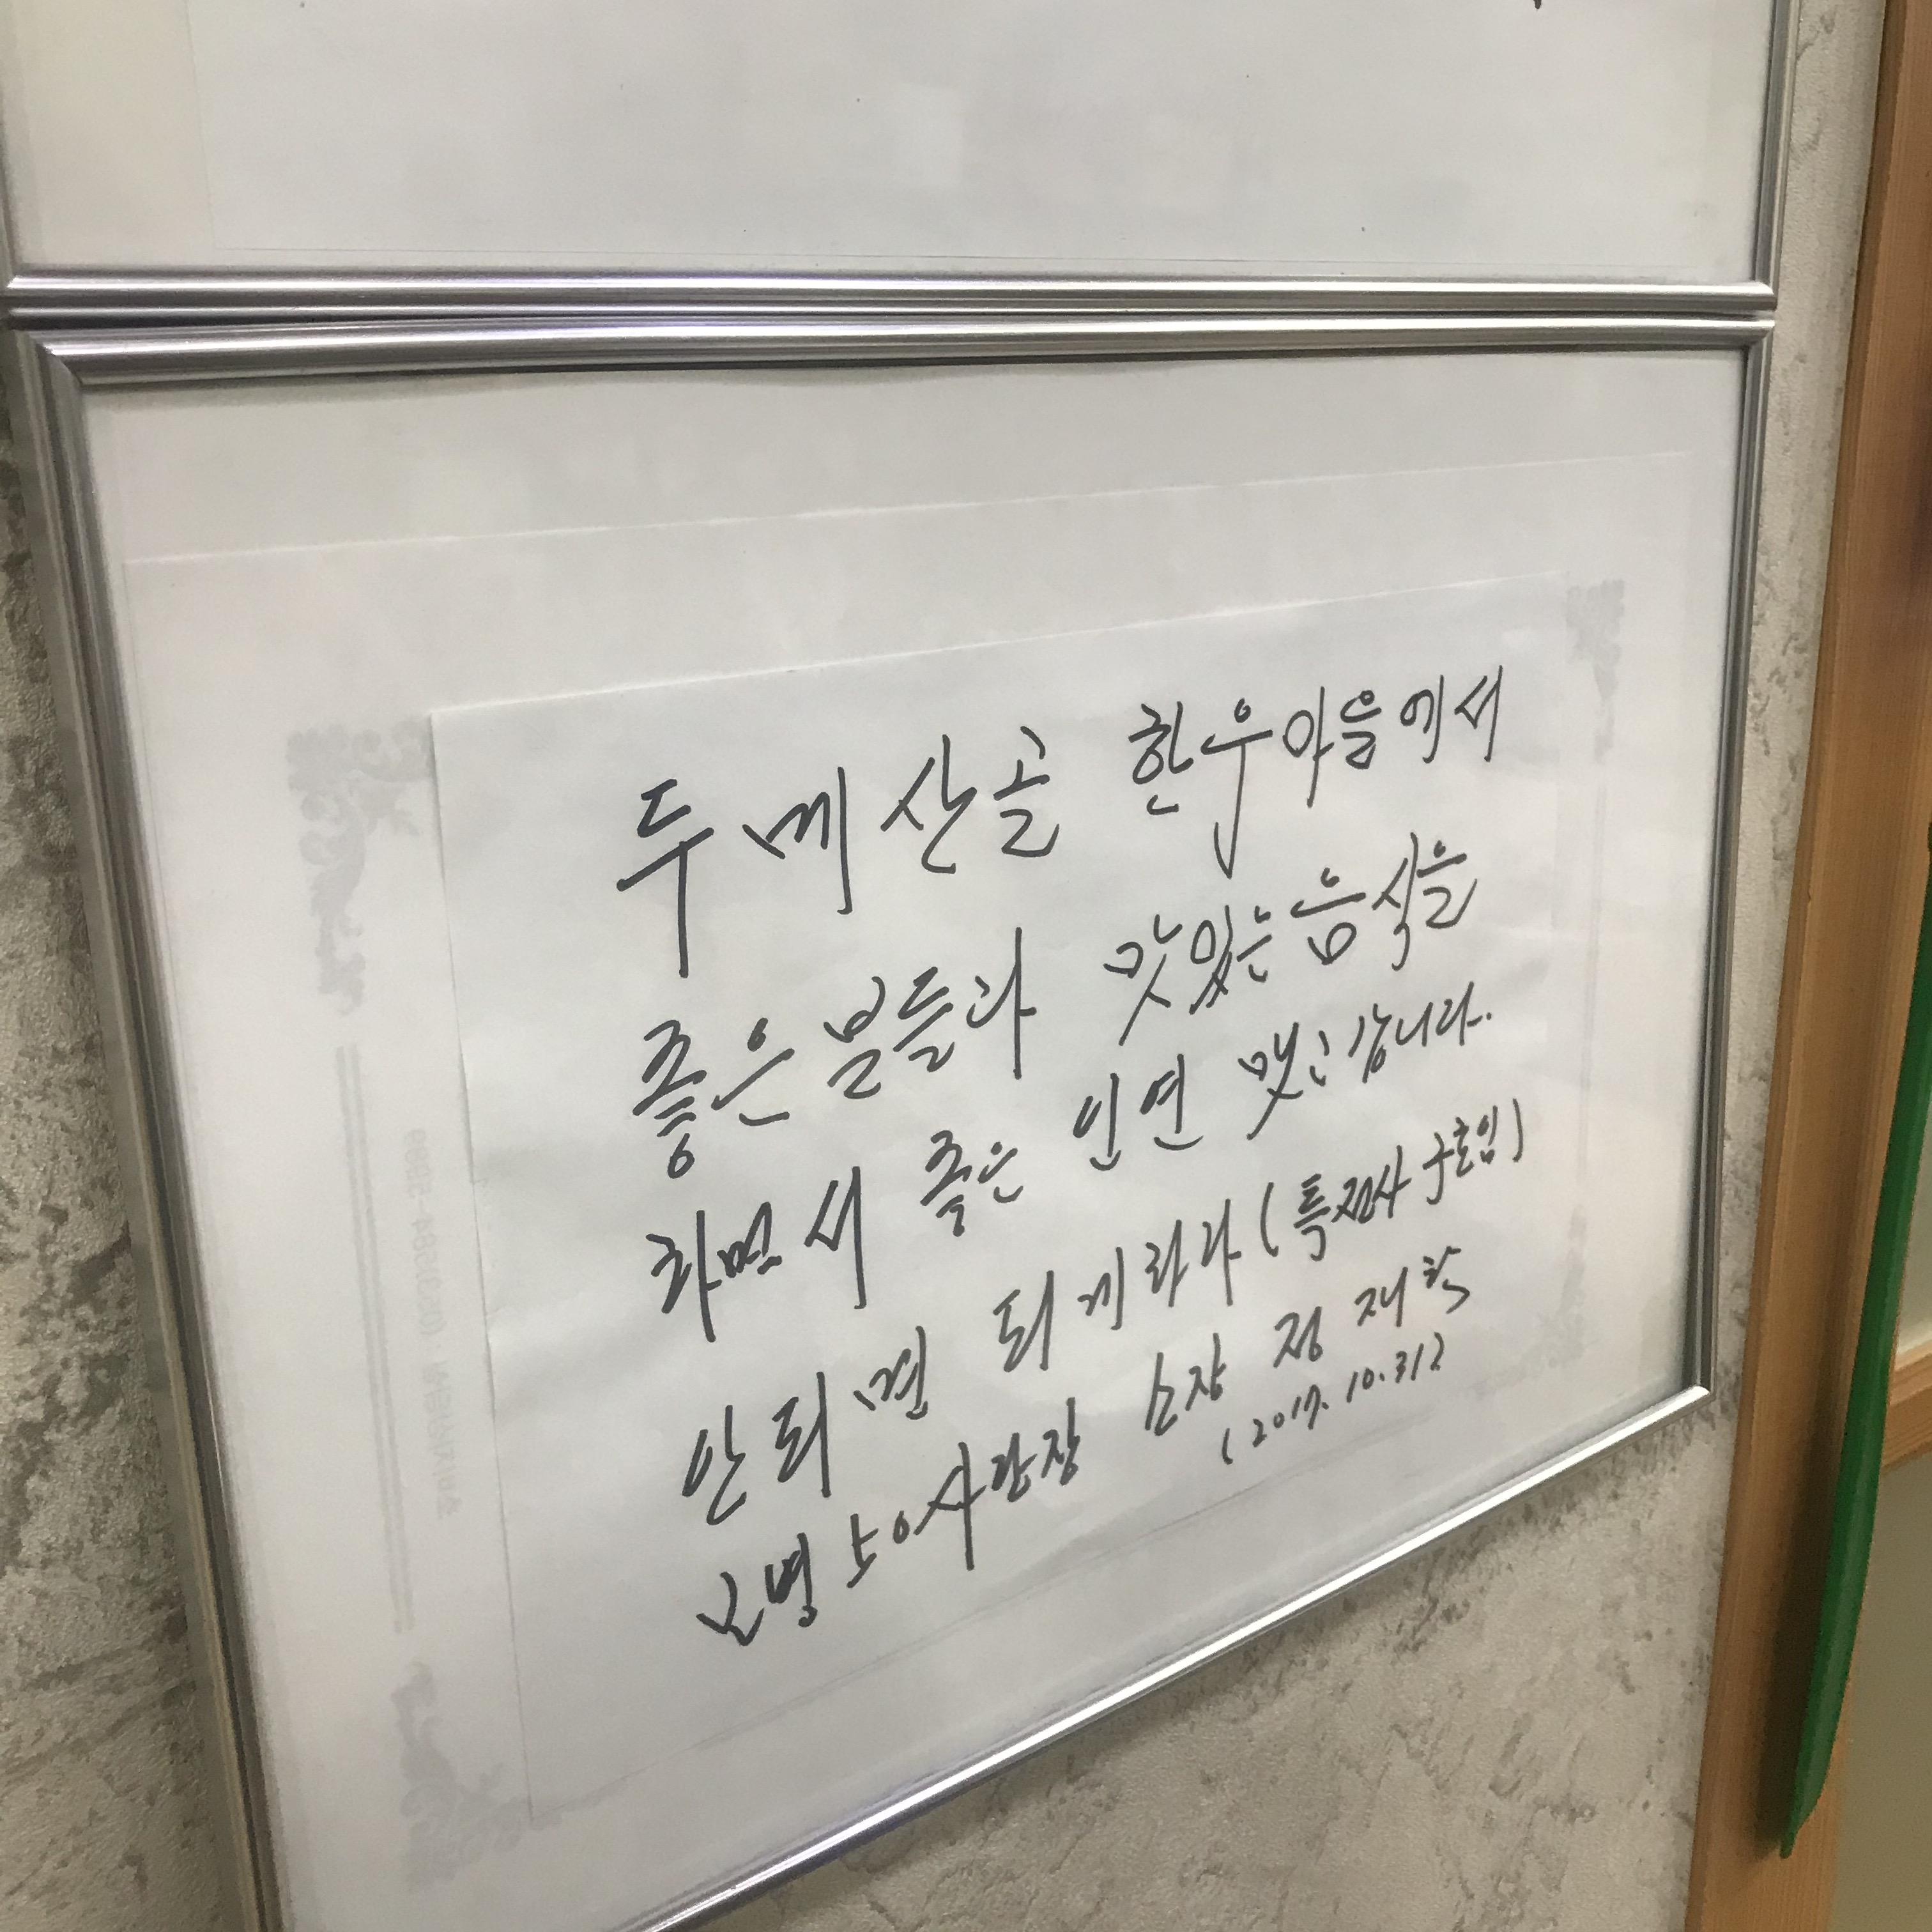 두메산골 한우마을에서
좋은분들과 맛있는음식을
하면서 좋은 인연 맺고갑니다.
안되면 되게하라 (특전사 구호임)
오명보여사단장 소장 정 재학
(2017. 10. 31)